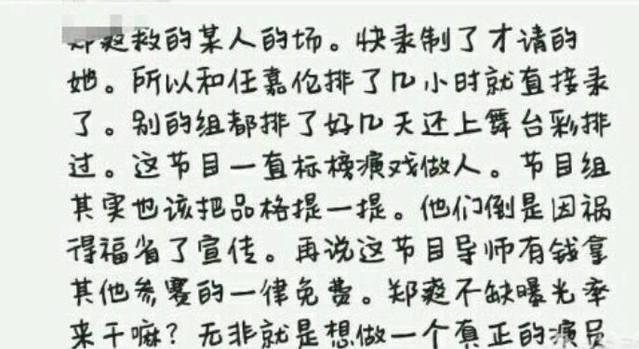 郑爽救的某人的场。快录制了才请的
她。所以和任嘉伦排了几小时就直接录
了。别的组都排了好几天还上舞台彩排
过。这节目一直标榜演戏做人。节目组
其实也该把品格提一提。他们倒是因祸
得福省了宣传。再说这节目导师有钱拿
其他参赛的一律免费。郑爽不缺曝光率
来干嘛？无非就是想做一个真正的演员